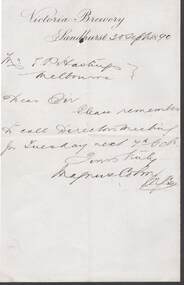 Victoria Brewery
Sandhurst 30 Sept 1890
Melbourne
Dear Sir
Please remember
to call Directors Meeting
for Tuesday next 7th Oct
Yours truly
Magnus Cohn